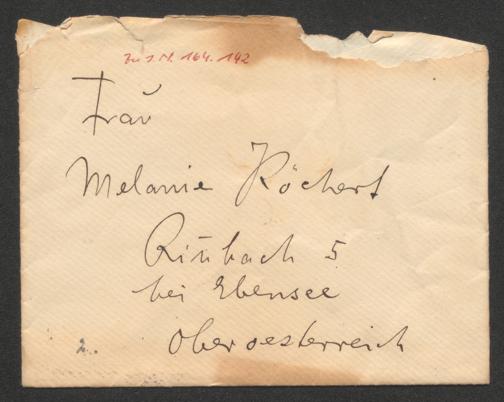 Zu I.N. 164.142
Frau
Melanie Köchert
Rinbach 5
bei Ebensee
Oberoesterreich
2.